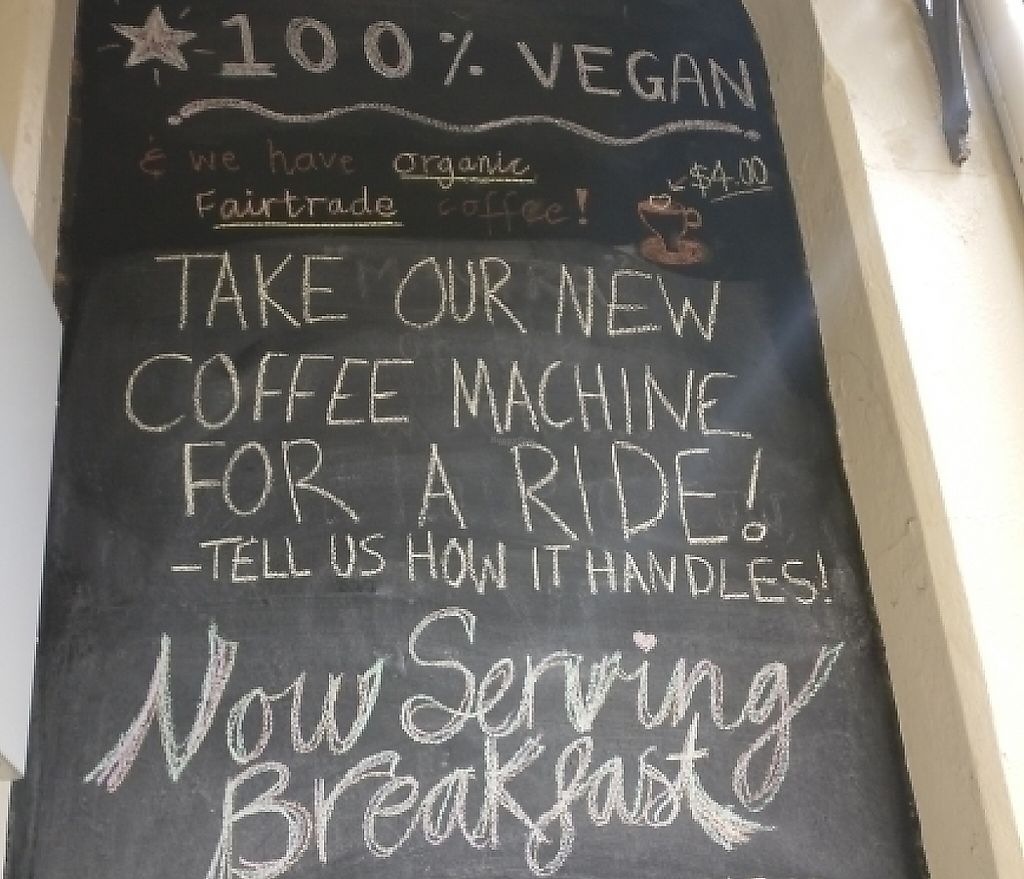 100% VEGAN
& we have organic
Fairtrade coffee!
$4.00
TAKE OUR NEW
COFFEE MACHINE
FOR A RIDE!
-TELL US HOW IT HANDLES!
Now Serving
Breakfast